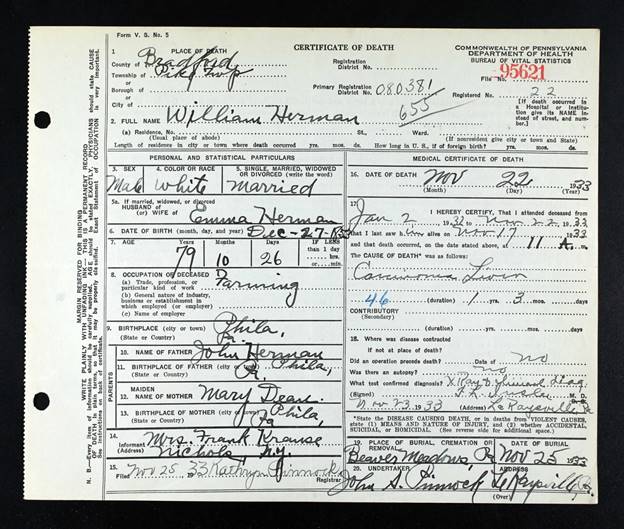 Form V. S. No. 5
CERTIFICATE OF DEATH
COMMONWEALTH OF PENNSYLVANIA
DEPARTMENT OF HEALTH
BUREAU OF VITAL STATISTICS
1 PLACE OF DEATH
County of Bradford
Township of Pike Twp
or
Borough of
or
City of
Registration District No.
Primary Registration District No. 080381
655
File No. 95621
Registered No. 22
[If death occurred in a Hospital or institution give its NAME instead of street, and number.]
2 FULL NAME William Herman
(a) Residence, No. St. Ward.
(Usual place of abode) (If nonresident give city or town and State)
Length of residence in city or town where death occurred yrs. mos. days. How long in U. S., if of foreign birth? yrs. mos. days
PERSONAL AND STATISTICAL PARTICULARS
3. SEX Male
4. COLOR OR RACE White
5. SINGLE, MARRIED, WIDOWED OR DIVORCED (write the word) Married
5a. If married, widowed, or divorced
HUSBAND of
(or) WIFE of Emma Herman
6. DATE OF BIRTH (month, day, and year) Dec-27-
7. AGE 79 YEARS 10 MONTHS 26 DAYS
IF LESS than 1 day hrs. or min.
8. OCCUPATION OF DECEASED
(a) Trade, profession, or particular kind of work Farming
(b) General nature of industry, business or establishment in which employed (or employer)
(c) Name of employer
9. BIRTHPLACE (city or town) Phila,
(State or Country) Pa
10. NAME OF FATHER John Herman
11. BIRTHPLACE OF FATHER (city or town) Phila,
(State or Country) Pa.
12. MAIDEN NAME OF MOTHER Mary Dean
13. BIRTHPLACE OF MOTHER (city or town) Phila
(State or Country) Pa
14. Informant Mrs. Frank Krause
(Address) Nichols, N.Y.
15. Filed Nov 25 33 Kathryn Pinnock
Registrar
MEDICAL CERTIFICATE OF DEATH
16. DATE OF DEATH Nov 22 1933
(Month) (Day) (Year)
17 I HEREBY CERTIFY, That I attended deceased from
Jan 2 1932 to Nov 22 1933
that I last saw him alive on Nov 17 1933
and that death occurred, on the date stated above, at 11 A. m.
The CAUSE OF DEATH* was as follows:
Carcinoma Liver
46 (duration) 1 yrs. 3 mos. days
CONTRIBUTORY
(Secondary)
(duration) yrs. mos. days
18. Where was disease contracted
if not at place of death?
Did an operation precede death? no Date of
Was there an autopsy? no
What test confirmed diagnosis? X Ray &
(Signed) M. D.
Nov 23, 1933 (Address) LeRaysville, Pa
*State the DISEASE CAUSING DEATH, or in deaths from VIOLENT CAUSES, state (1) MEANS AND NATURE OF INJURY, and (2) whether ACCIDENTAL, SUICIDAL, or HOMICIDAL. (See reverse side for additional space.)
19. PLACE OF BURIAL, CREMATION OR REMOVAL Beaver Meadows, Pa
DATE OF BURIAL Nov 25 1933
20. UNDERTAKER John S. Pinnock
ADDRESS LeRaysville, Pa.
(Over)
MARGIN RESERVED FOR BINDING
WRITE PLAINLY, WITH UNFADING INK—THIS IS A PERMANENT RECORD